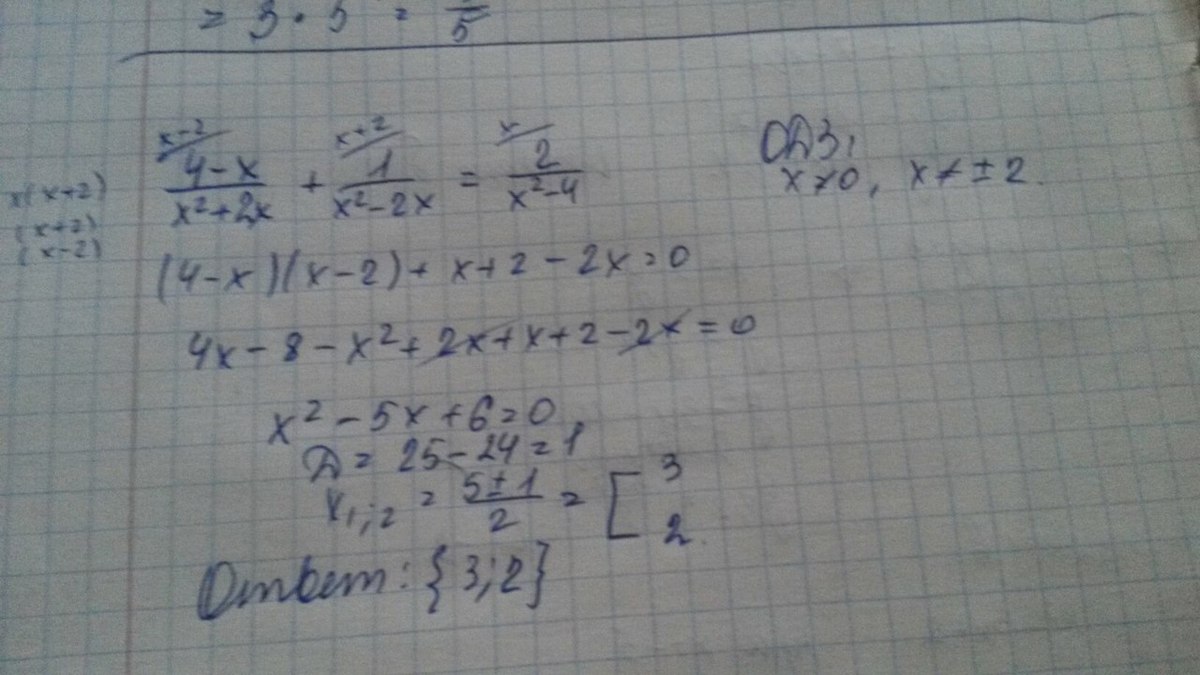 = 3 · 5 =  /5
x-2 x+2 x
x(x+2) (4-x)/(x²+2x) + 1/(x²-2x) = 2/(x²-4) ОДЗ,
(x+2) x≠0, x≠±2.
(x-2)
(4-x)(x-2)+ x+2-2x=0
4x-8-x²+2x+x+2-2x=0
x²-5x+6=0
D= 25-24=1
x1;2 = (5±1)/2 = [ 3
2.
Ответ: {3;2}